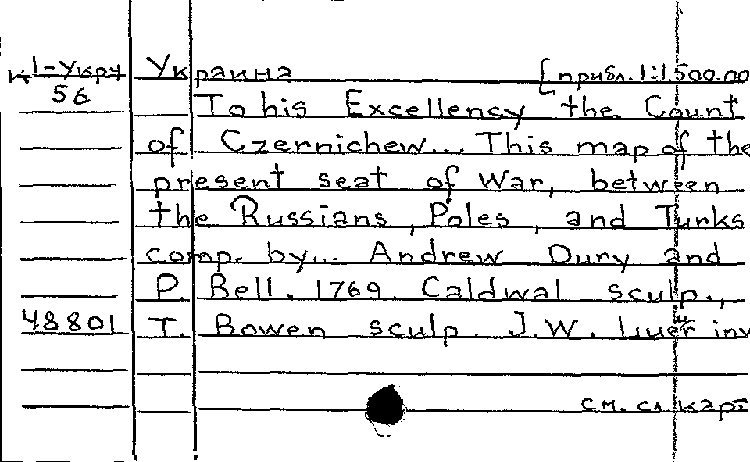 к1-Укру Украина [прибл. 1:1500.00
56 To his Excellency the Count
of Czernichew... This map of the
present seat of War, between
the Russians, Poles, and Turks
comp. by... Andrew Dury and
P. Bell. 1769. Caldwal sculp.,
48801 T. Bowen sculp. J.W. inv
см. сл карт